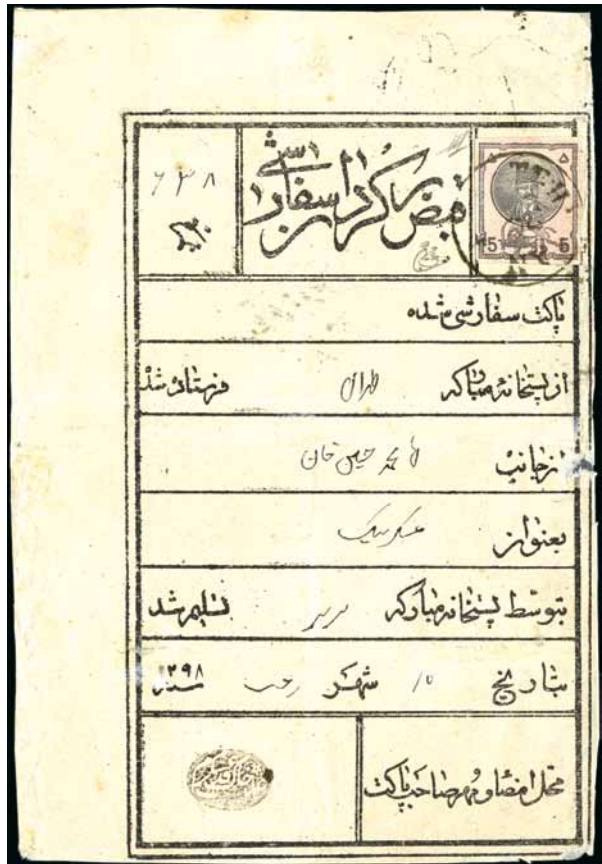 ۶۳۸
قبض برگردان سفارشی
5 5
TEH
پاکت سفارشی شده
از پستخانه مبارکه طهران فرستاده شد
از جانب محمد حسین خان
بعنوان
بتوسط پستخانه مبارکه تسلیم شد
بتاریخ ۱۵ شهر رجب سنه ۱۲۹۸
محل امضا و مهر صاحب پاکت